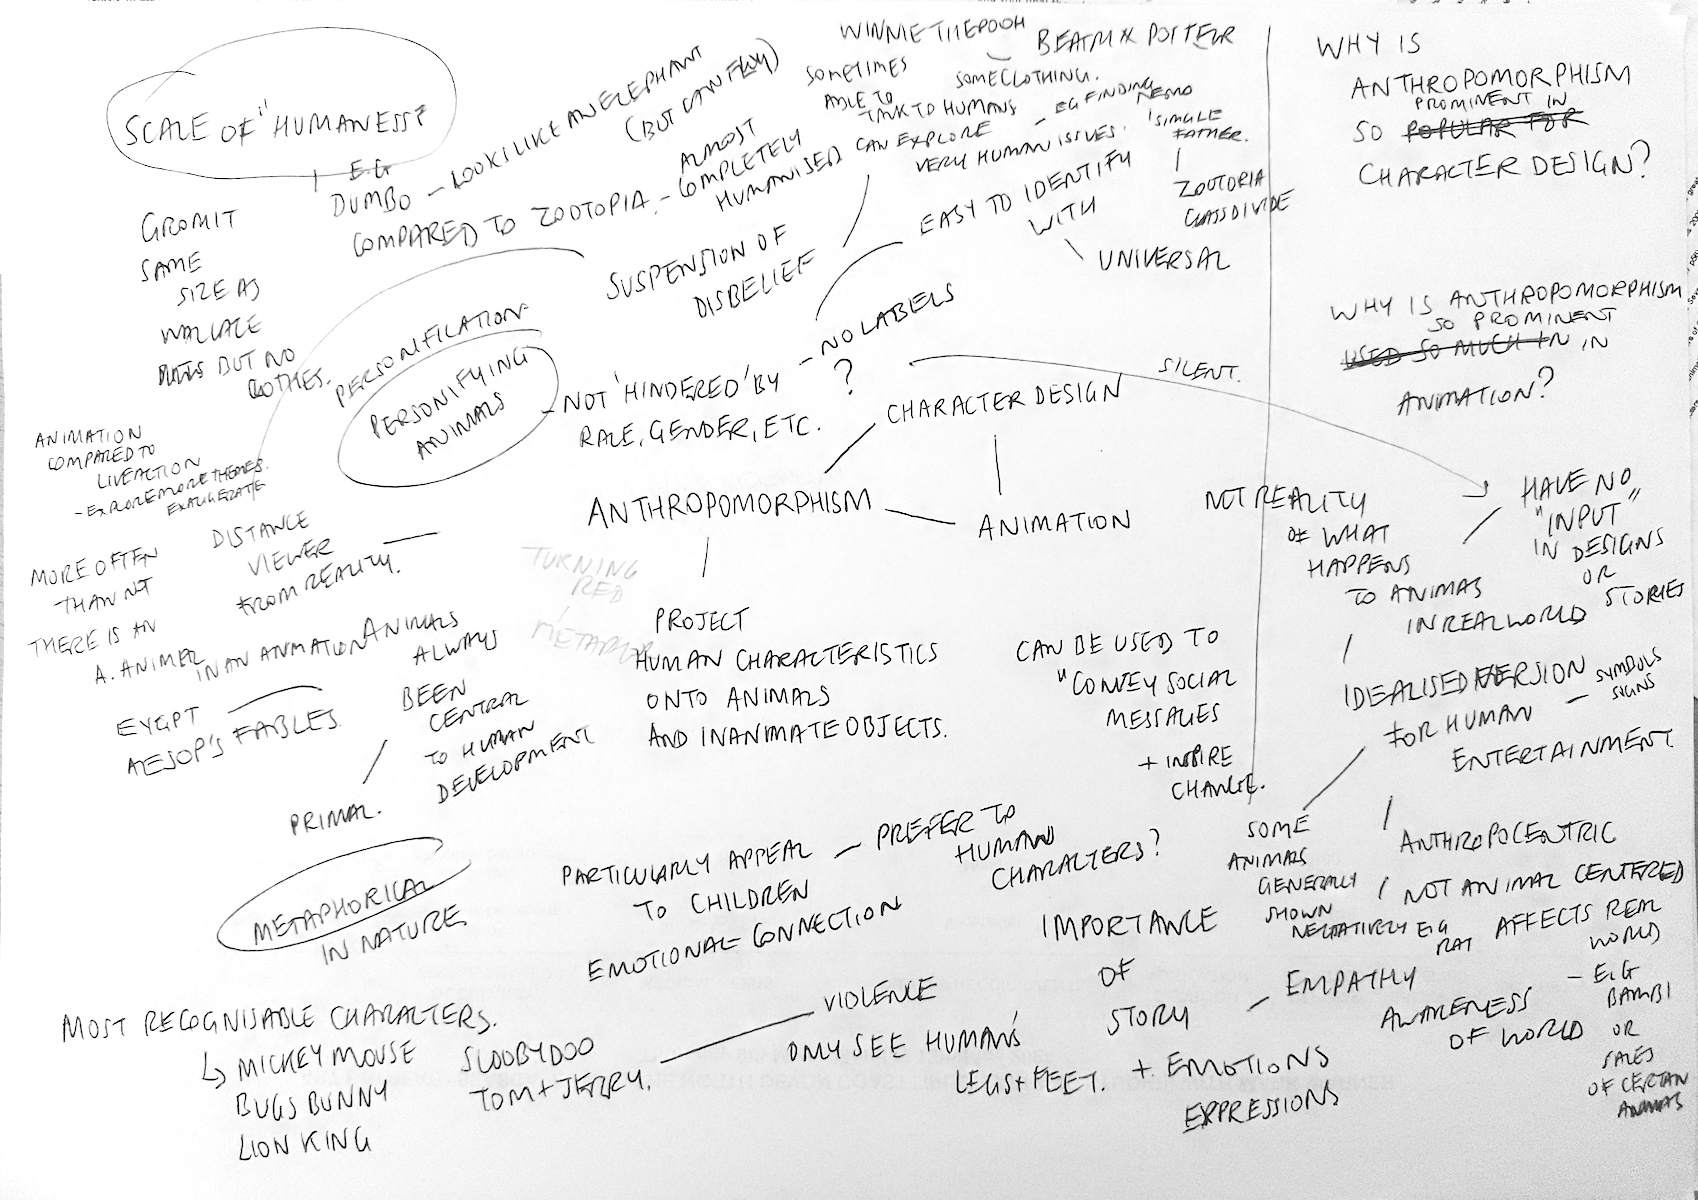 SCALE OF "HUMANESS?
E.G
DUMBO - LOOK LIKE AN ELEPHANT
(BUT CAN FLY)
COMPARED TO ZOOTOPIA. - ALMOST
COMPLETELY
HUMANISED
GROMIT
SAME
SIZE AS
WALLACE
BUT NO
CLOTHES.
WINNIE THE POOH
BEATRIX POTTER
SOMETIMES
ABLE TO
TALK TO HUMANS
SOME CLOTHING.
CAN EXPLORE
VERY HUMAN ISSUES.
- EG FINDING
NEMO
'SINGLE
FATHER.
ZOOTOPIA
CLASS DIVIDE
EASY TO IDENTIFY
WITH
UNIVERSAL
SUSPENSION OF
DISBELIEF
PERSONIFICATION
PERSONIFYING
ANIMALS
- NOT 'HINDERED' BY
RACE, GENDER, ETC.
- NO LABELS
?
CHARACTER DESIGN
SILENT.
ANTHROPOMORPHISM
ANIMATION
ANIMATION
COMPARED TO
LIVE ACTION
- EXPLORE MORE THEMES.
EXAGGERATE
DISTANCE
VIEWER
FROM REALITY.
MORE OFTEN
THAN NOT
THERE IS AN
A. ANIMAL
IN AN ANIMATION
EYGPT
AESOP'S FABLES.
ANIMALS
ALWAYS
BEEN
CENTRAL
TO HUMAN
DEVELOPMENT
PRIMAL.
TURNING
RED
METAPHOR
PROJECT
HUMAN CHARACTERISTICS
ONTO ANIMALS
AND INANIMATE OBJECTS.
CAN BE USED TO
"CONVEY SOCIAL
MESSAGES
+ INSPIRE
CHANGE.
METAPHORICAL
IN NATURE
PARTICULARLY APPEAL
TO CHILDREN
- PREFER TO
HUMAN
CHARACTERS?
EMOTIONAL CONNECTION
MOST RECOGNISABLE CHARACTERS.
MICKEY MOUSE
BUGS BUNNY
LION KING
SCOOBYDOO
TOM + JERRY.
VIOLENCE
ONLY SEE HUMANS'
LEGS + FEET.
IMPORTANCE
OF
STORY
+ EMOTIONS
EXPRESSIONS
- EMPATHY
WHY IS
ANTHROPOMORPHISM
PROMINENT IN
SO POPULAR FOR
CHARACTER DESIGN?
WHY IS ANTHROPOMORPHISM
SO PROMINENT
USED SO MUCH IN IN
ANIMATION?
HAVE NO
"INPUT"
IN DESIGNS
OR
STORIES
NOT REALITY
OF WHAT
HAPPENS
TO ANIMALS
IN REAL WORLD
IDEALISED VERSION
FOR HUMAN
ENTERTAINMENT
- SYMBOLS
SIGNS
SOME
ANIMALS
GENERALLY
SHOWN
NEGATIVELY E.G
RAT
ANTHROPOCENTRIC
NOT ANIMAL CENTERED
AFFECTS REAL
WORLD
- E.G
BAMBI
OR
SALES
OF CERTAIN
ANIMALS
AWARENESS
OF WORLD